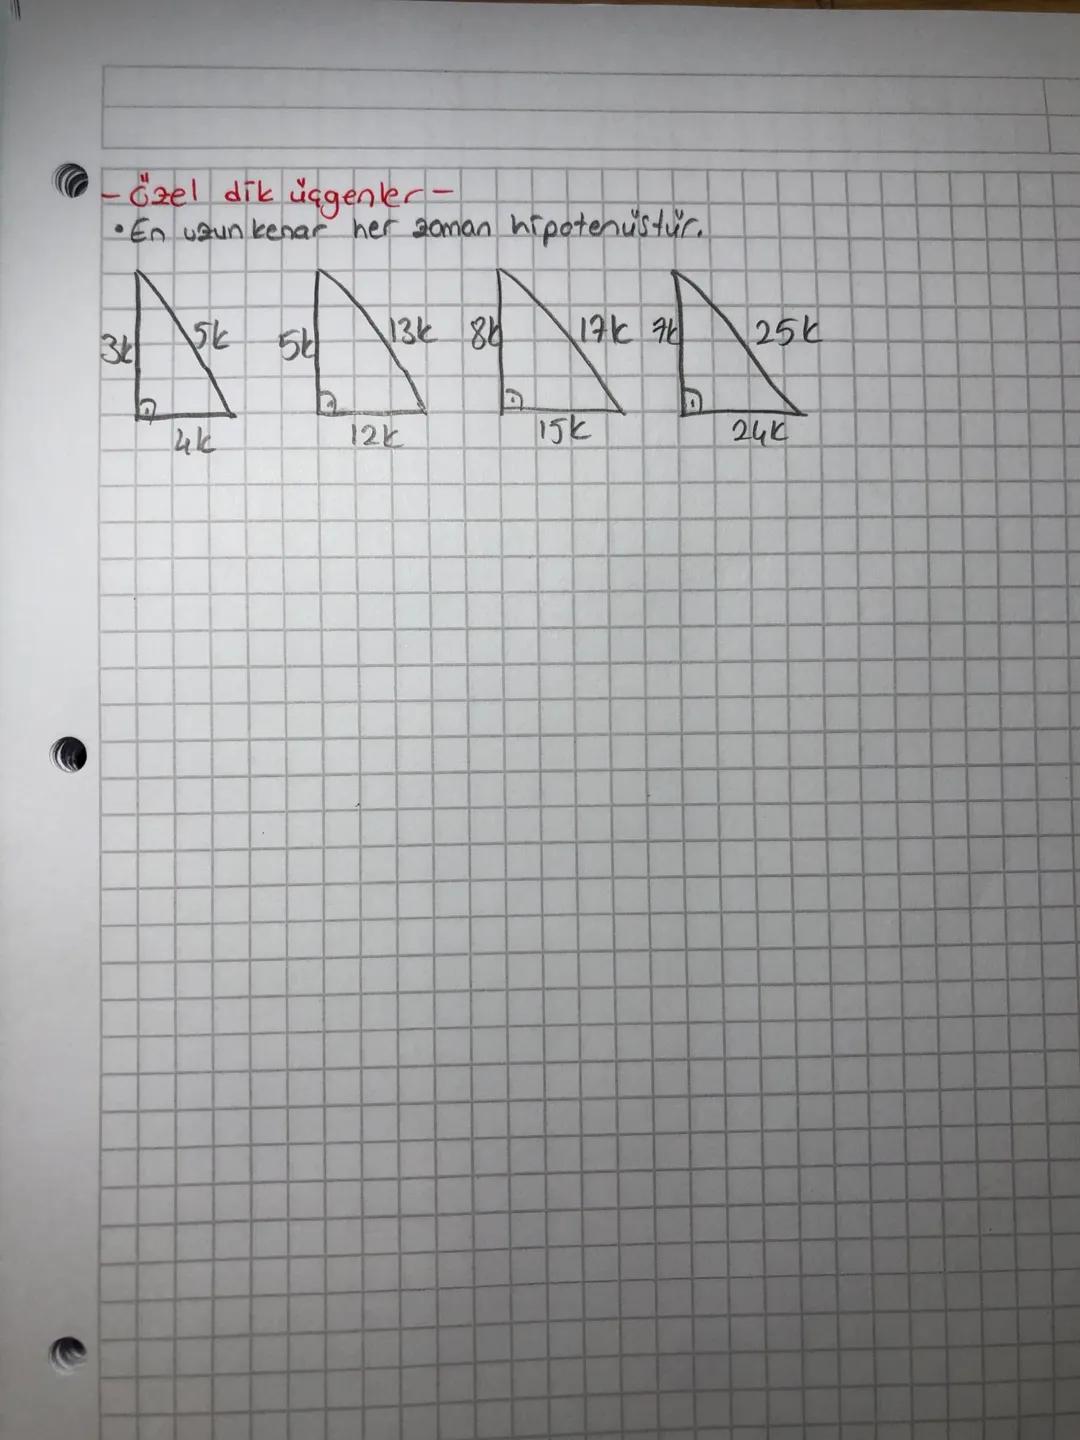 - özel dik üçgenler -
• En uzun kenar her zaman hipotenüstür.
3k 5k 5k 13k 8k 17k 7k 25k
4k 12k 15k 24k